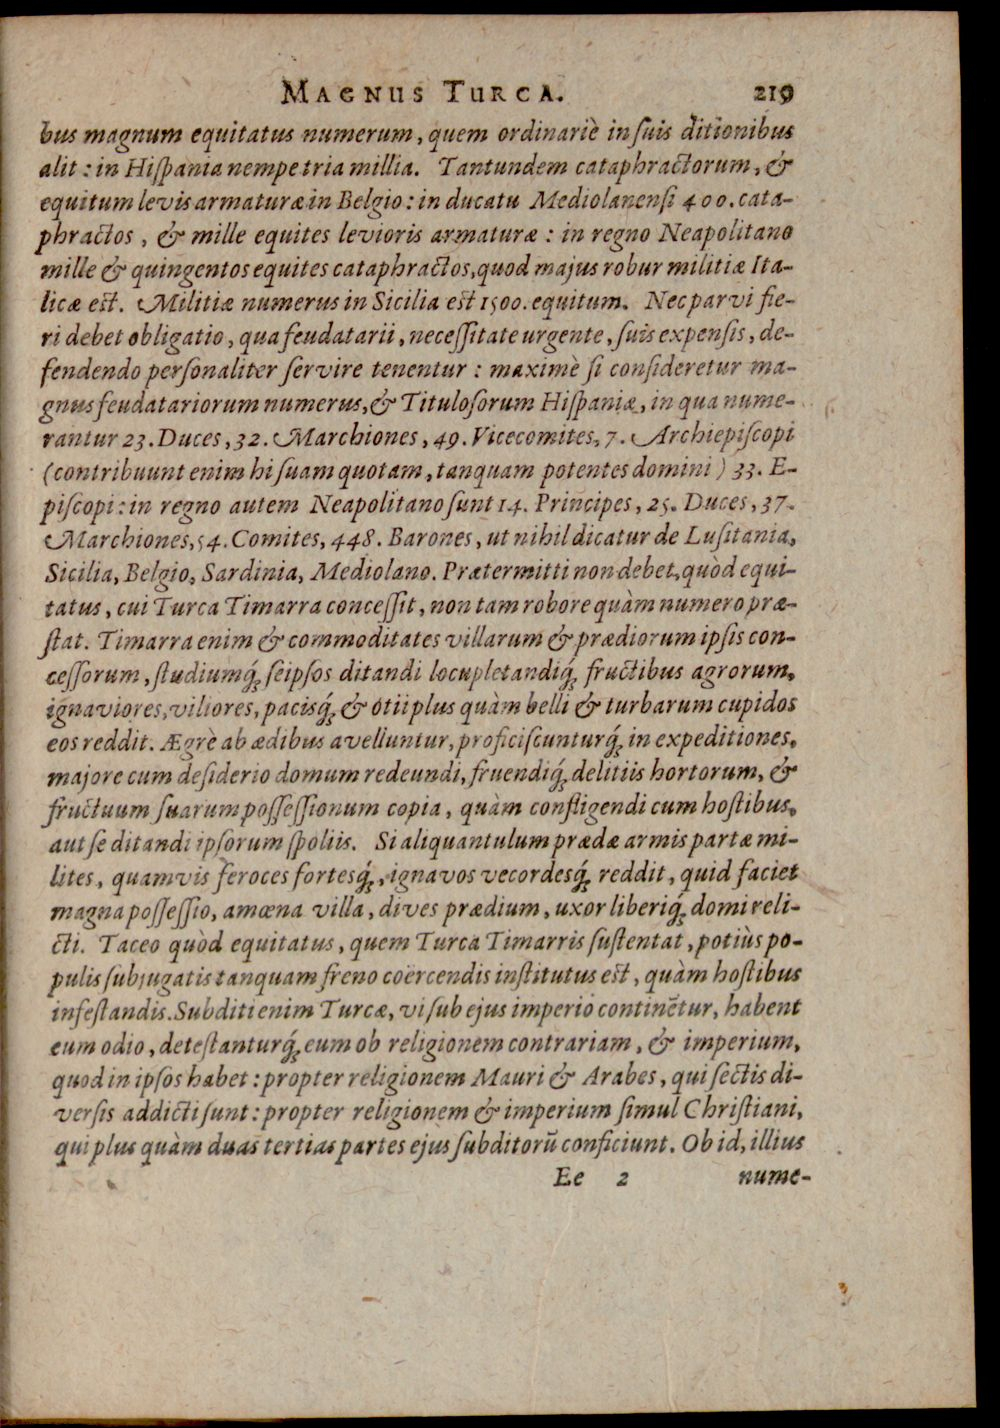 MAGNUS TURCA. 219
bus magnum equitatus numerum, quem ordinariè in ſuis ditionibus
alit: in Hiſpania nempe tria millia. Tantundem cataphractorum, &
equitum levis armaturæ in Belgio: in ducatu Mediolanenſi 400. cata-
phractos, & mille equites levioris armaturæ: in regno Neapolitano
mille & quingentos equites cataphractos, quod majus robur militiæ Ita-
licæ eſt. Militiæ numerus in Sicilia eſt 1500. equitum. Nec parvi fie-
ri debet obligatio, qua feudatarii, neceſſitate urgente, ſuis expenſis, de-
fendendo perſonaliter ſervire tenentur: maximè ſi conſideretur ma-
gnus feudatariorum numerus, & Tituloſorum Hiſpaniæ, in qua nume-
rantur 23. Duces, 32. Marchiones, 49. Vicecomites, 7. Archiepiſcopi
(contribuunt enim hi ſuam quotam, tanquam potentes domini) 33. E-
piſcopi: in regno autem Neapolitano ſunt 14. Principes, 25. Duces, 37.
Marchiones, 54. Comites, 448. Barones, ut nihil dicatur de Luſitania,
Sicilia, Belgio, Sardinia, Mediolano. Prætermitti non debet, quòd equi-
tatus, cui Turca Timarra conceſſit, non tam robore quàm numero præ-
ſtat. Timarra enim & commoditates villarum & prædiorum ipſis con-
ceſſorum, ſtudiumq́; ſeipſos ditandi locupletandiq́; fructibus agrorum,
ignaviores, viliores, pacisq́; & otii plus quàm belli & turbarum cupidos
eos reddit. Ægrè ab ædibus avelluntur, proficiſcunturq́; in expeditiones,
majore cum deſiderio domum redeundi, fruendiq́; delitiis hortorum, &
fructuum ſuarum poſſeſſionum copia, quàm confligendi cum hoſtibus,
aut ſe ditandi ipſorum ſpoliis. Si aliquantulum prædæ armis partæ mi-
lites, quamvis feroces fortesq́;, ignavos vecordesq́; reddit, quid faciet
magna poſſeſſio, amœna villa, dives prædium, uxor liberiq́; domi reli-
cti. Taceo quòd equitatus, quem Turca Timarris ſuſtentat, potiùs po-
pulis ſubjugatis tanquam freno coërcendis inſtitutus eſt, quàm hoſtibus
infeſtandis. Subditi enim Turcæ, vi ſub ejus imperio continẽtur, habent
eum odio, deteſtanturq́; eum ob religionem contrariam, & imperium,
quod in ipſos habet: propter religionem Mauri & Arabes, qui ſectis di-
verſis addicti ſunt: propter religionem & imperium ſimul Chriſtiani,
qui plus quàm duas tertias partes ejus ſubditorũ conficiunt. Ob id, illius
Ee 2 nume-